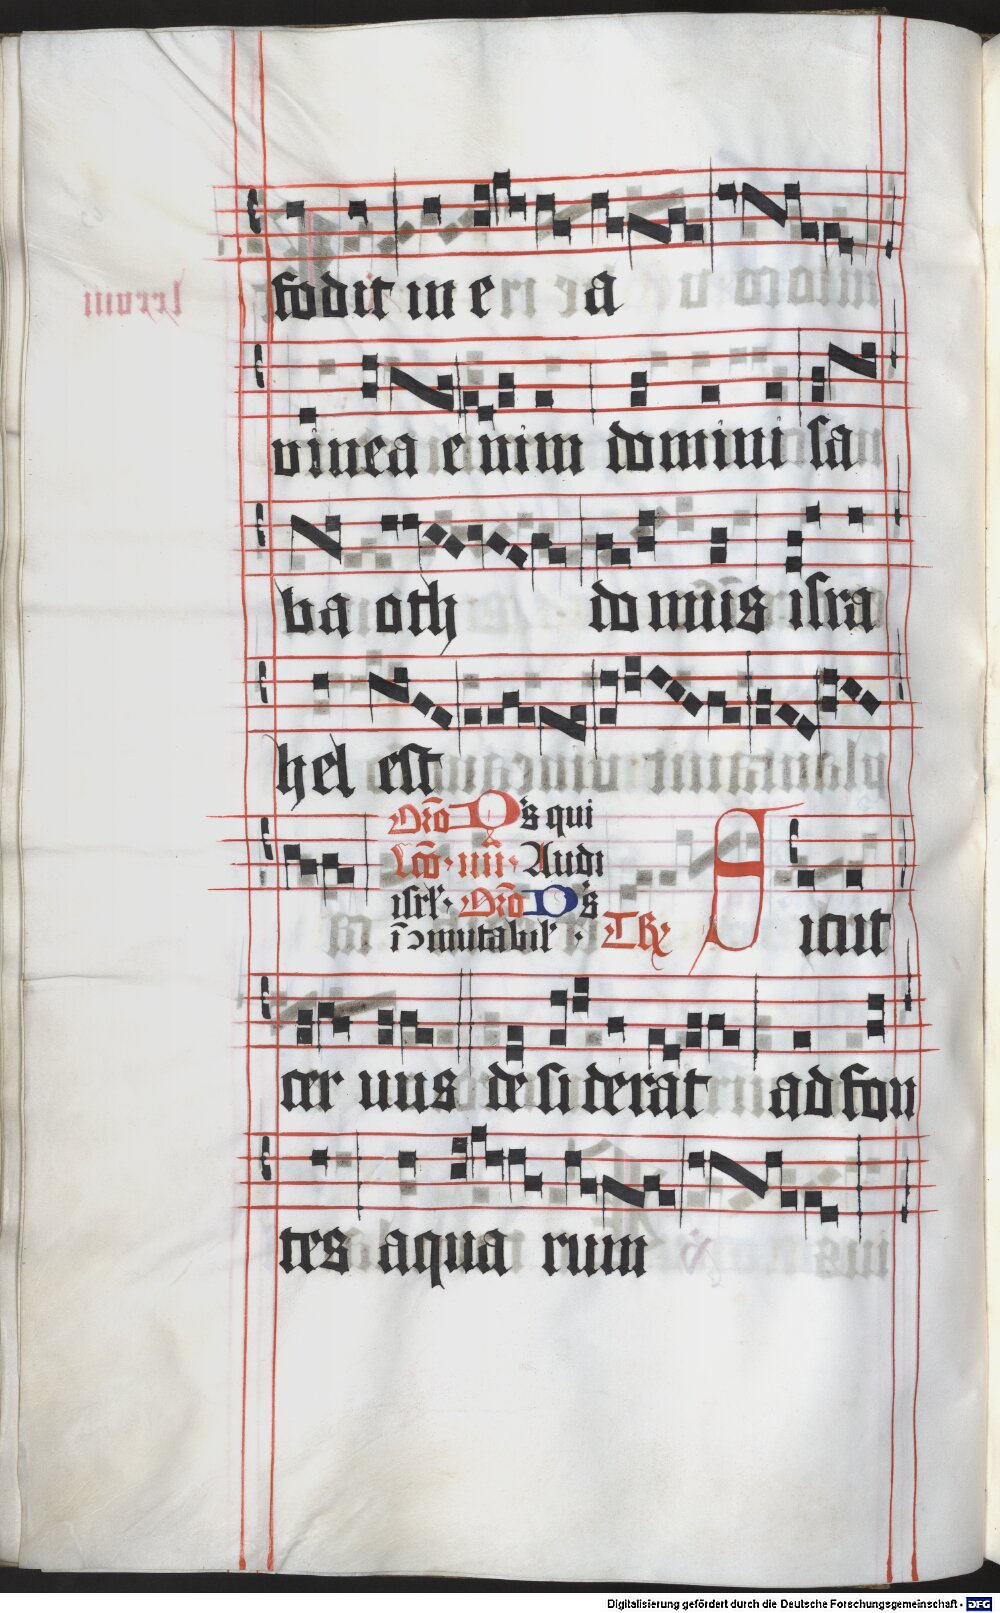 fodit in e a
vinea e nim domini sa
ba oth do mus isra
hel est
Oro̅ D's qui
Lc̅o · iiii · Audi
isrl' · Oro̅ D's
i̅ɔmutabil' · Tr̅
Sicut
cer uus de si derat ad fon
tes aqua rum
Digitalisierung gefördert durch die Deutsche Forschungsgemeinschaft - DFG